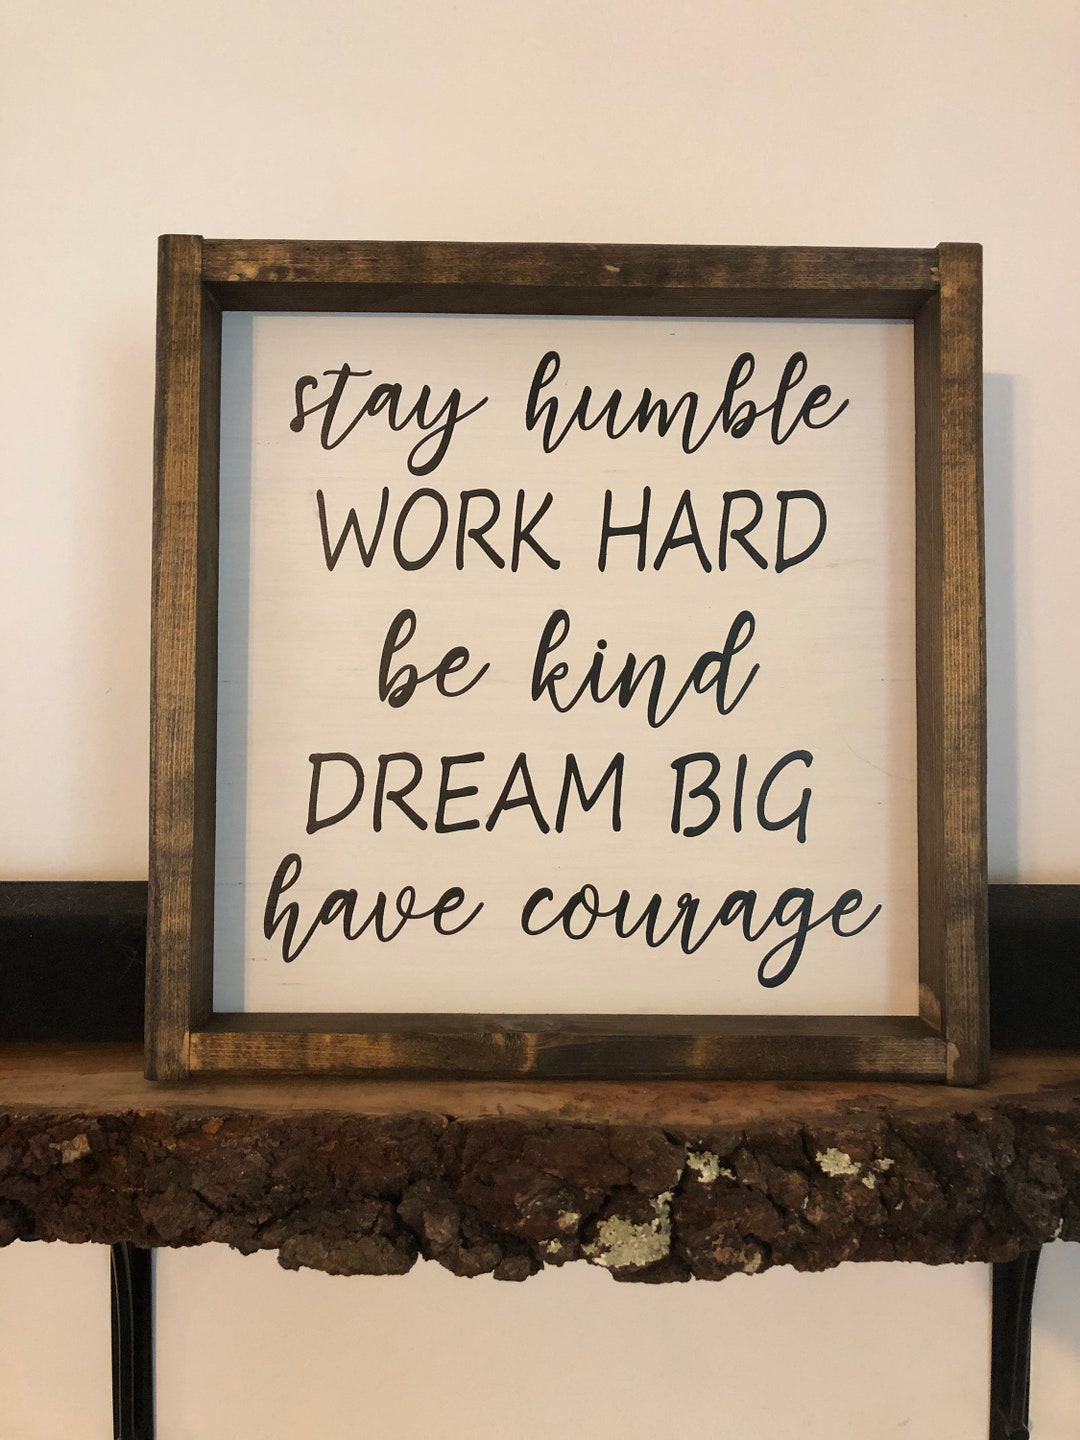 stay humble
WORK HARD
be kind
DREAM BIG
have courage